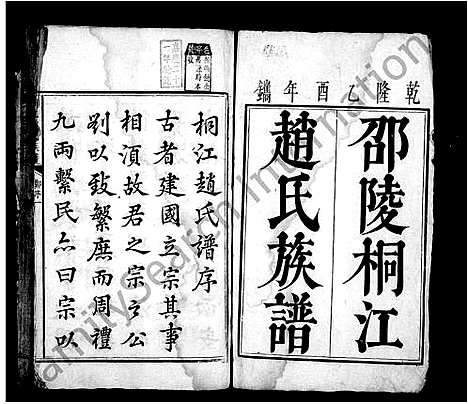 乾隆乙酉年鐫
邵陵桐江
趙氏族譜
桐江趙氏譜序
古者建國立宗其事
相須故君之宗之公
別以致繁庶而周禮
九兩繫民亦曰宗以
FamilySearch International